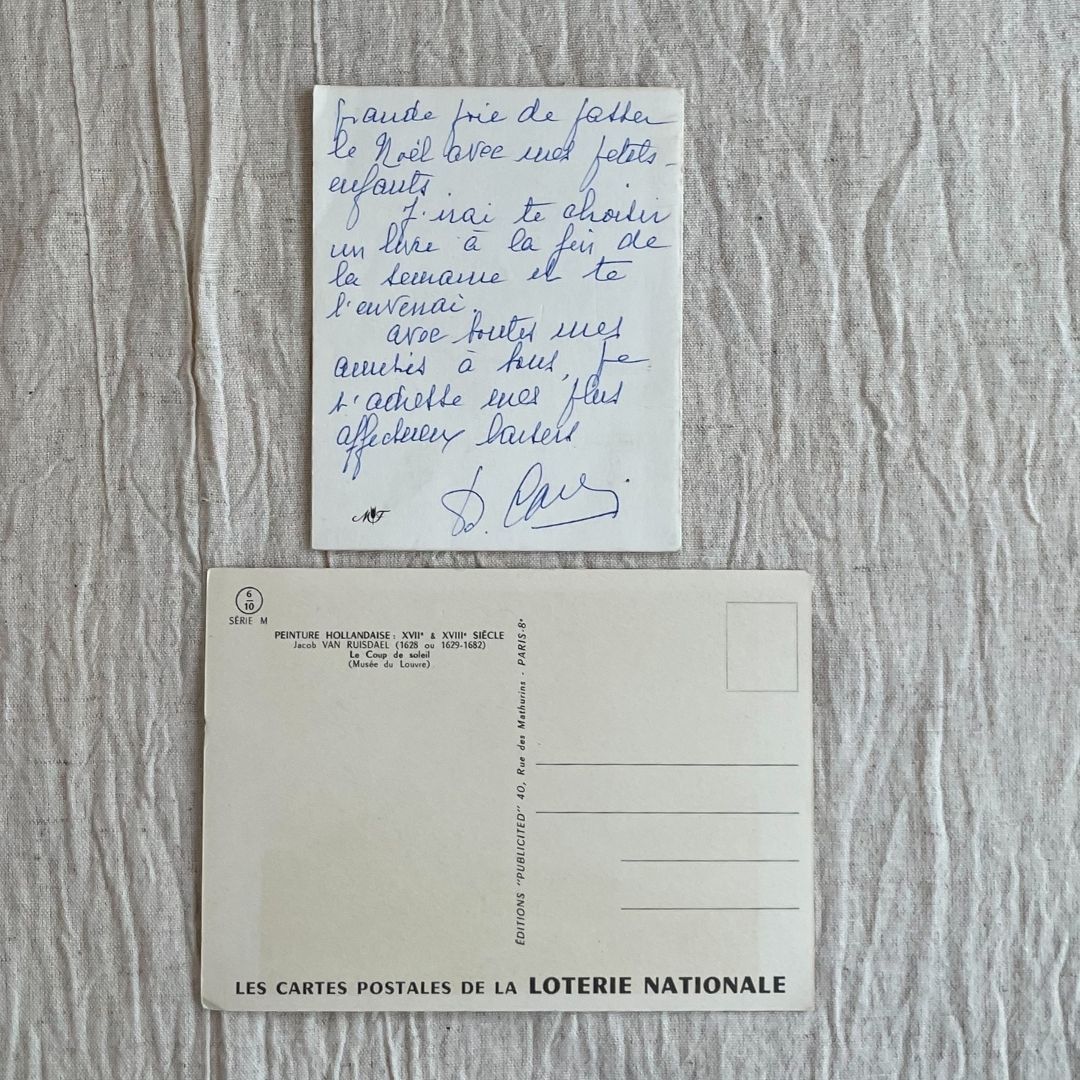 grande joie de passer
le Noël avec mes petits-
enfants.
J'irai te choisir
un livre à la fin de
la semaine et te
l'enverrai.
avec toutes mes
amitiés à tous, je
t'adresse mes plus
affectueux baisers
MF
6
10
SÉRIE M
PEINTURE HOLLANDAISE : XVIIe & XVIIIe SIÈCLE
Jacob VAN RUISDAEL (1628 ou 1629-1682)
Le Coup de soleil
(Musée du Louvre)
ÉDITIONS "PUBLICITED" 40, Rue des Mathurins - PARIS-8e
LES CARTES POSTALES DE LA LOTERIE NATIONALE